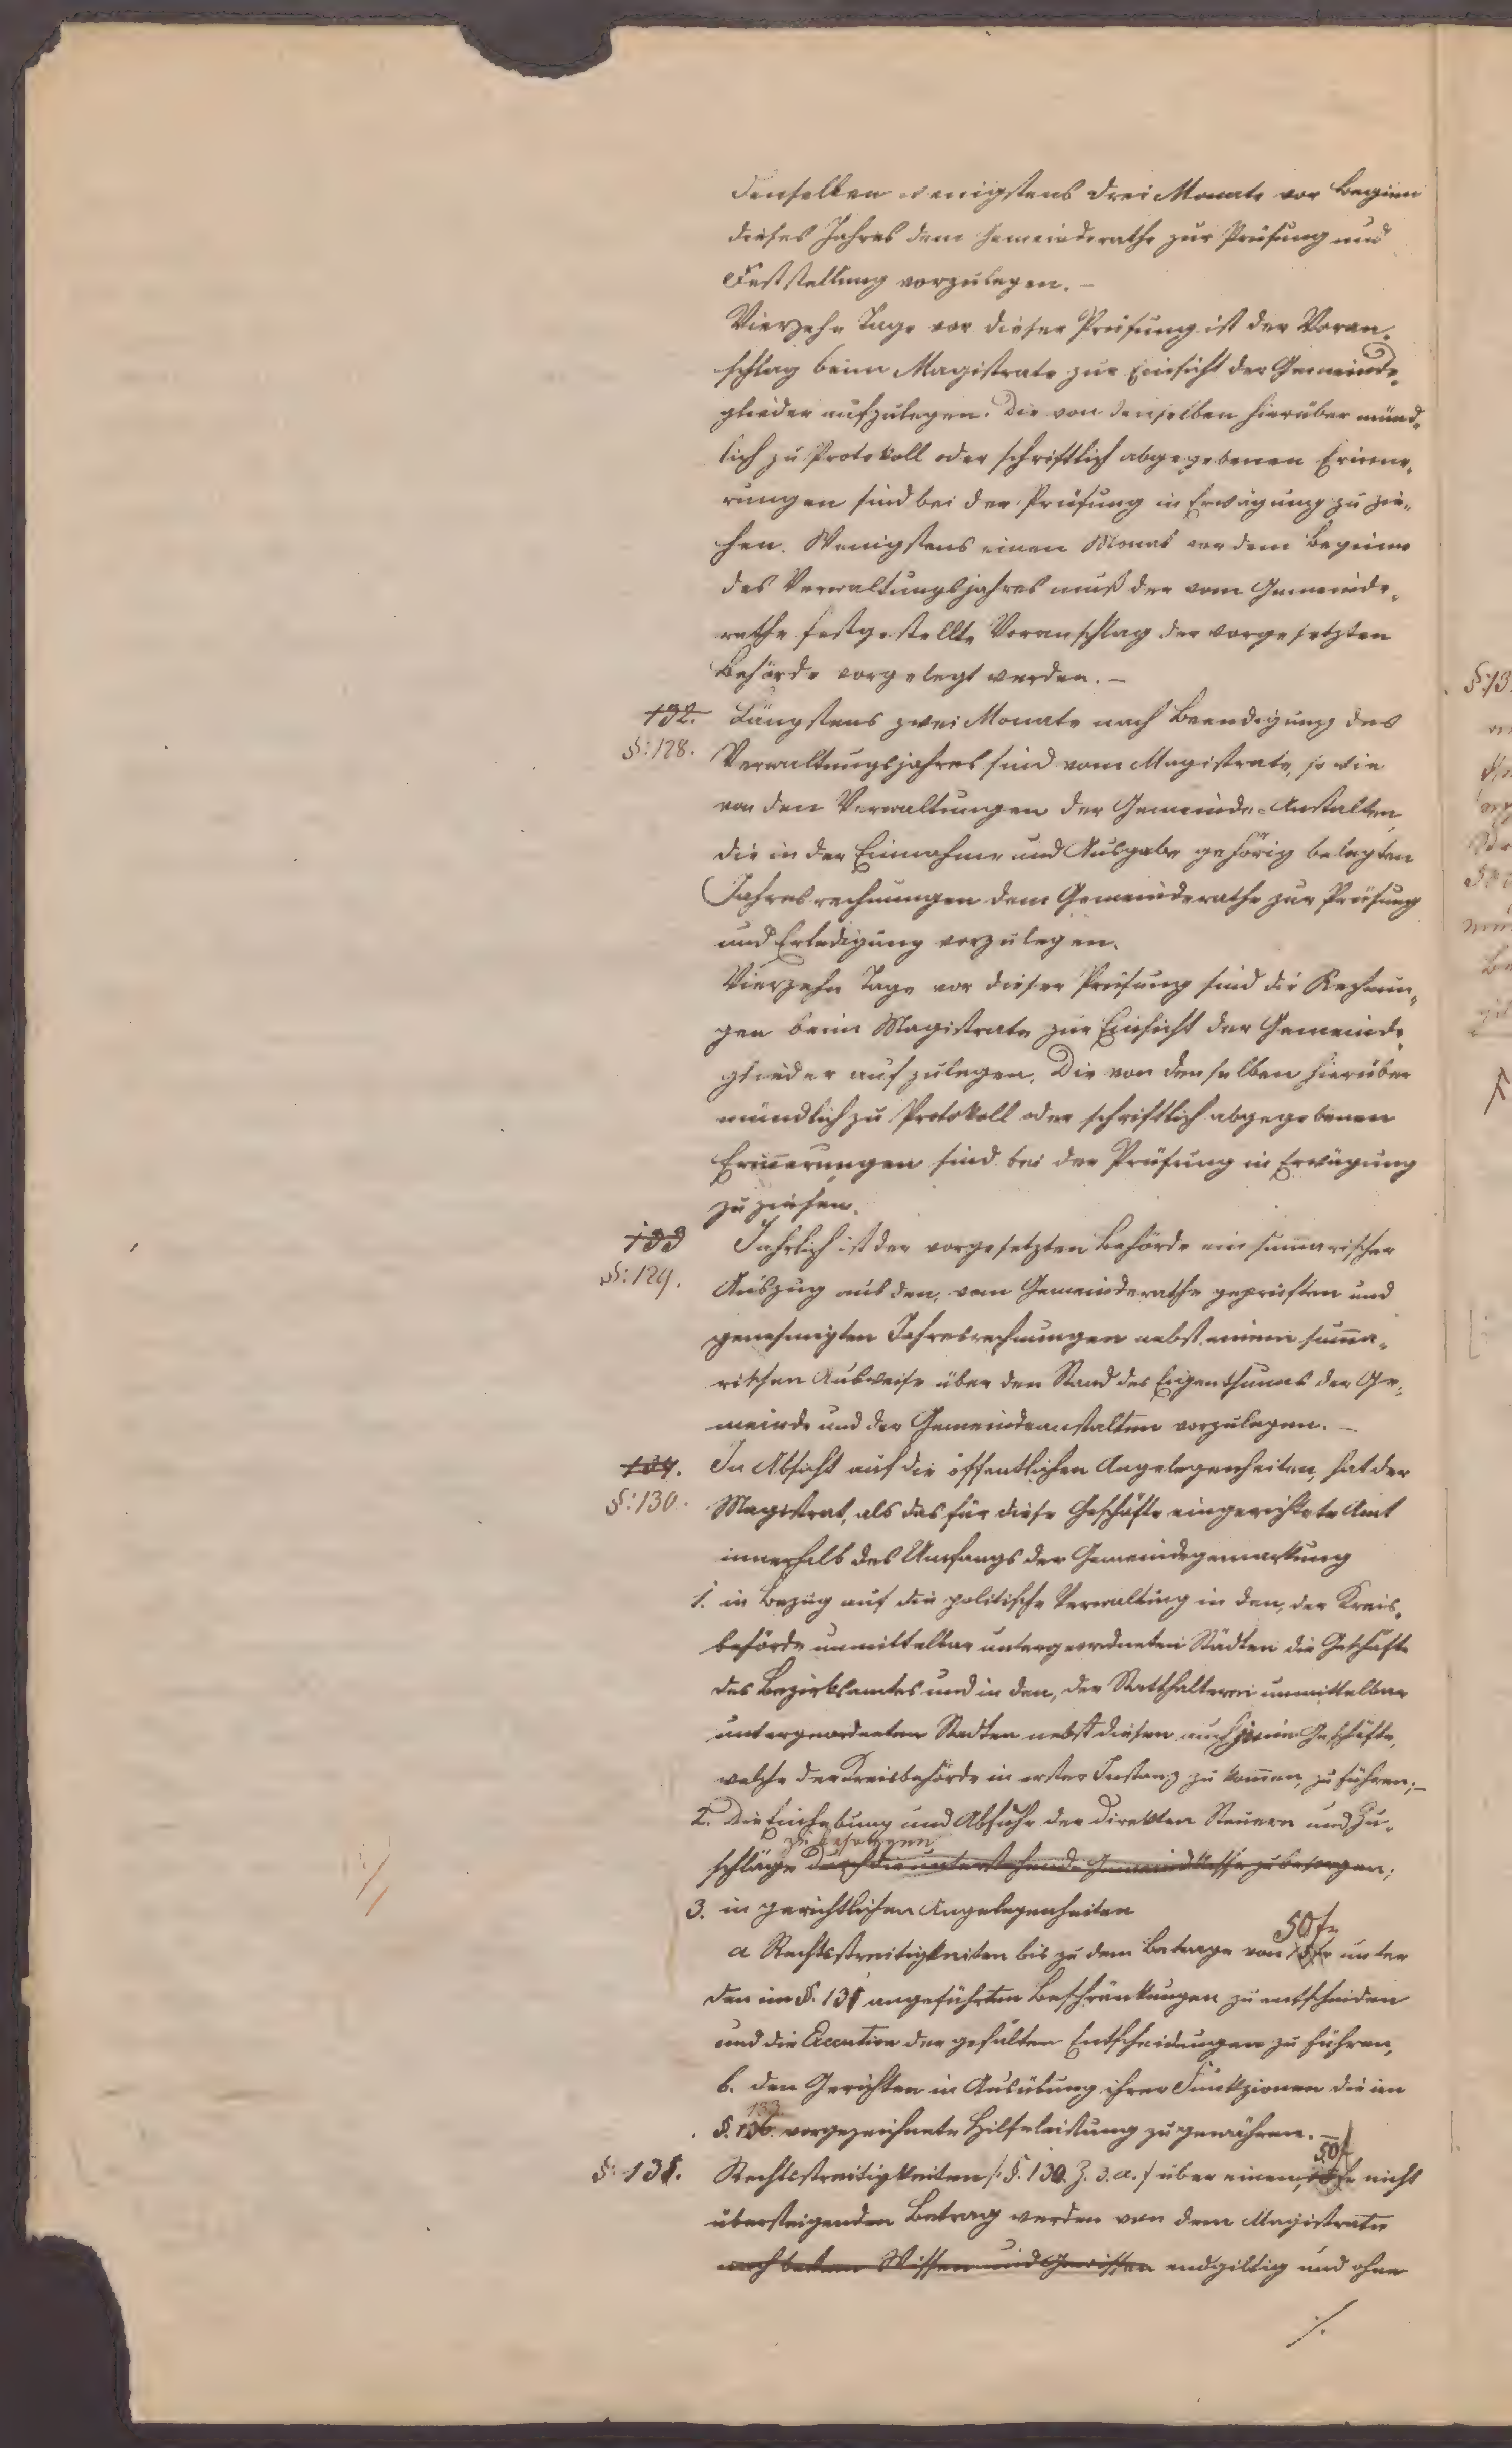 denselben wenigstens drei Monate vor Beginn
dieses Jahres dem Gemeinderathe zur Prüfung und
Feststellung vorzulegen. –
Vierzehn Tage vor dieser Prüfung ist der Voran-
schlag beim Magistrate zur Einsicht der Gemeinde-
glieder aufzulegen. Die von denselben hierüber münd-
lich zu Protokoll oder schriftlich abgegebenen Erinne-
rungen sind bei der Prüfung in Erwägung zu zie-
hen. Wenigstens einen Monat vor dem Beginne
des Verwaltungsjahres muß der vom Gemeinde-
rathe festgestellte Voranschlag der vorgesetzten
Behörde vorgelegt werden. –
132. Längstens zwei Monate nach Beendigung des
§: 128. Verwaltungsjahres sind vom Magistrate, so wie
von den Verwaltungen der Gemeinde-Anstalten
die in der Einnahme und Ausgabe gehörig belegten
Jahresrechnungen dem Gemeinderathe zur Prüfung
und Erledigung vorzulegen.
Vierzehn Tage vor dieser Prüfung sind die Rechnun-
gen beim Magistrate zur Einsicht der Gemeinde-
glieder aufzulegen. Die von denselben hierüber
mündlich zu Protokoll oder schriftlich abgegebenen
Erinnerungen sind bei der Prüfung in Erwägung
zu ziehen.
133 Jährlich ist der vorgesetzten Behörde ein sumarischer
§: 129. Auszug aus den, vom Gemeinderathe geprüften und
genehmigten Jahresrechnungen nebst einem suma-
rischen Ausweise über den Stand des Eigenthums der Ge-
meinde und der Gemeindeanstalten vorzulegen. –
134. In Absicht auf die öffentlichen Angelegenheiten, hat der
§: 130. Magistrat, als das für diese Geschäfte eingerichtete Amt
innerhalb des Umfangs der Gemeindegemarkung
1. in Bezug auf die politische Verwaltung in den, der Kreis-
behörde unmittelbar untergeordneten Städten die Geschäfte
des Bezirksamtes und in den, der Statthalterei unmittelbar
untergeordneten Städten nebst diesen auch jene Geschäfte,
welche der Kreisbehörde in erster Instanz zukomen, zu führen; –
2. Die Einhebung und Abfuhr der direkten Steuern und Zu-
zu besorgen
schläge durch die unterstehende Gemeindekasse zu besorgen;
3. in gerichtlichen Angelegenheiten
50 fr
a Rechtsstreitigkeiten bis zu dem Betrage von unter
den im §. 131 angeführten Beschränkungen zu entscheiden
und die Execution der gefällten Entscheidungen zu führen,
b. den Gerichten in Ausübung ihrer Funkzionen die im
133.
§. 136. vorgezeichnete Hilfeleistung zu gewähren. –
50 f
§: 131. Rechtsstreitigkeiten /: §. 130. Z. 3. a. / über einen, nicht
übersteigenden Betrag werden von dem Magistrate
nach bestem Wissen und Gewissen endgiltig und ohne
./.